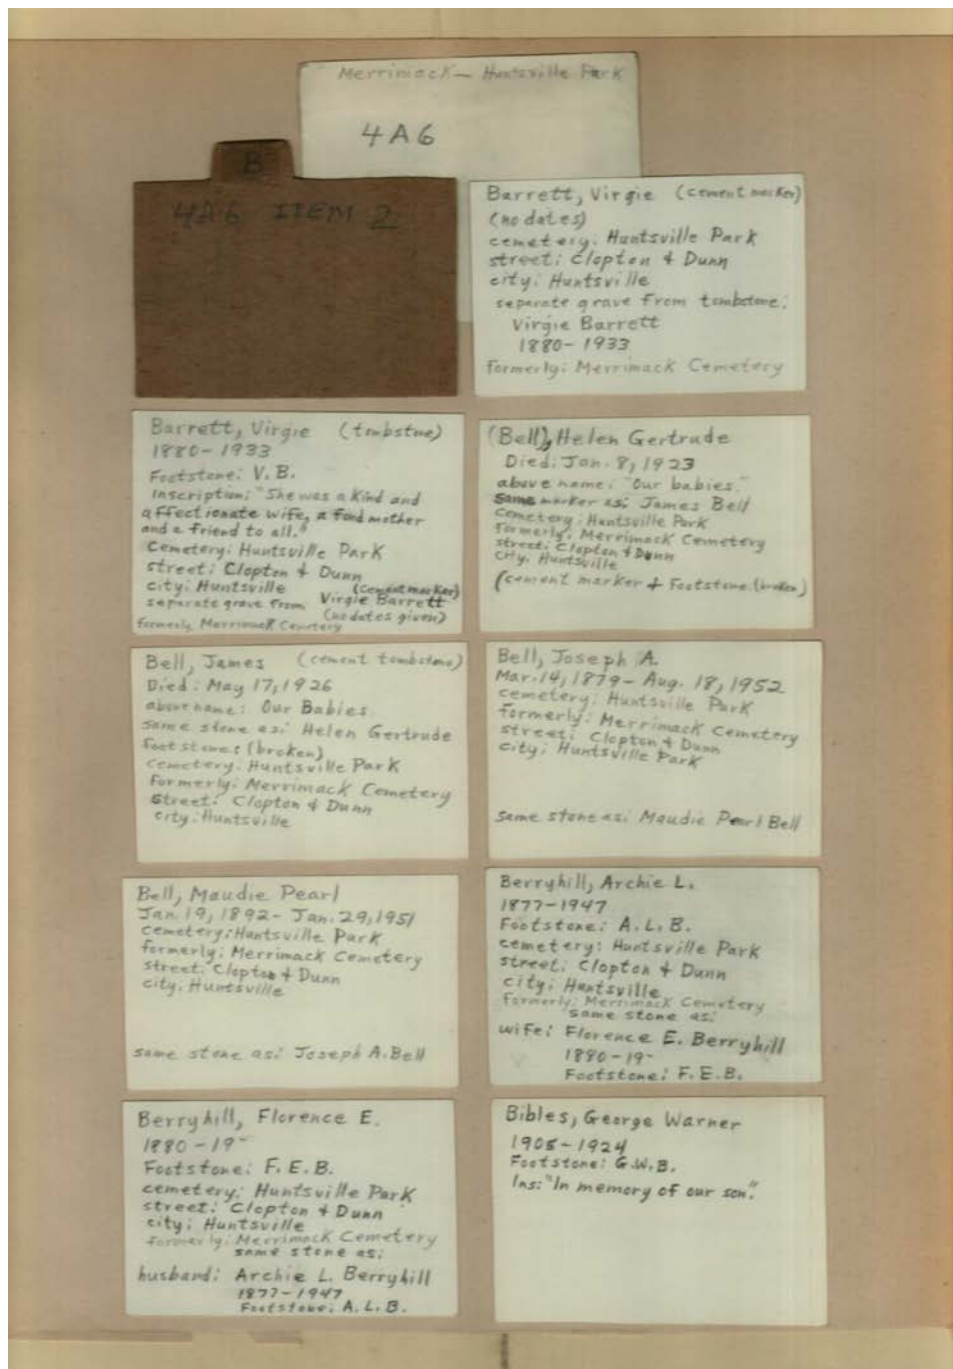 Merrimack - Huntsville Park
4A6
B
4A6 ITEM 2
Barrett, Virgie (cement marker)
(no dates)
cemetery: Huntsville Park
street: Clopton & Dunn
city: Huntsville
separate grave from tombstone:
Virgie Barrett
1880-1933
formerly: Merrimack Cemetery
Barrett, Virgie (tombstone)
1880-1933
Footstone: V.B.
inscription: "She was a kind and
affectionate wife, a fond mother
and a friend to all."
Cemetery: Huntsville Park
street: Clopton & Dunn
city: Huntsville (cement marker)
separate grave from Virgie Barrett
(no dates given)
formerly Merrimack Cemetery
(Bell), Helen Gertrude
Died: Jan. 8, 1923
above name: "Our babies."
same marker as: James Bell
Cemetery: Huntsville Park
formerly: Merrimack Cemetery
street: Clopton & Dunn
city. Huntsville
(cement marker & Footstone. (broken)
Bell, James (cement tombstone)
Died: May 17, 1926
above name: Our Babies.
same stone as: Helen Gertrude
footstones (broken)
cemetery: Huntsville Park
formerly: Merrimack Cemetery
street: Clopton & Dunn
city: Huntsville
Bell, Joseph A.
Mar. 14, 1879 - Aug. 18, 1952
cemetery: Huntsville Park
formerly: Merrimack Cemetery
street: Clopton & Dunn
city: Huntsville Park
same stone as: Maudie Pearl Bell
Bell, Maudie Pearl
Jan. 19, 1892 - Jan. 29, 1951
cemetery: Huntsville Park
formerly: Merrimack Cemetery
street: Clopton & Dunn
city: Huntsville
same stone as: Joseph A. Bell
Berryhill, Archie L.
1877-1947
Footstone: A.L.B.
cemetery: Huntsville Park
street: Clopton & Dunn
city: Huntsville
formerly: Merrimack Cemetery
same stone as:
wife: Florence E. Berryhill
1880-19-
Footstone: F.E.B.
Berryhill, Florence E.
1880-19-
Footstone: F.E.B.
cemetery: Huntsville Park
street: Clopton & Dunn
city: Huntsville
formerly: Merrimack Cemetery
same stone as:
husband: Archie L. Berryhill
1877-1947
Footstone: A.L.B.
Bibles, George Warner
1905-1924
Footstone: G.W.B.
Ins: "In memory of our son."